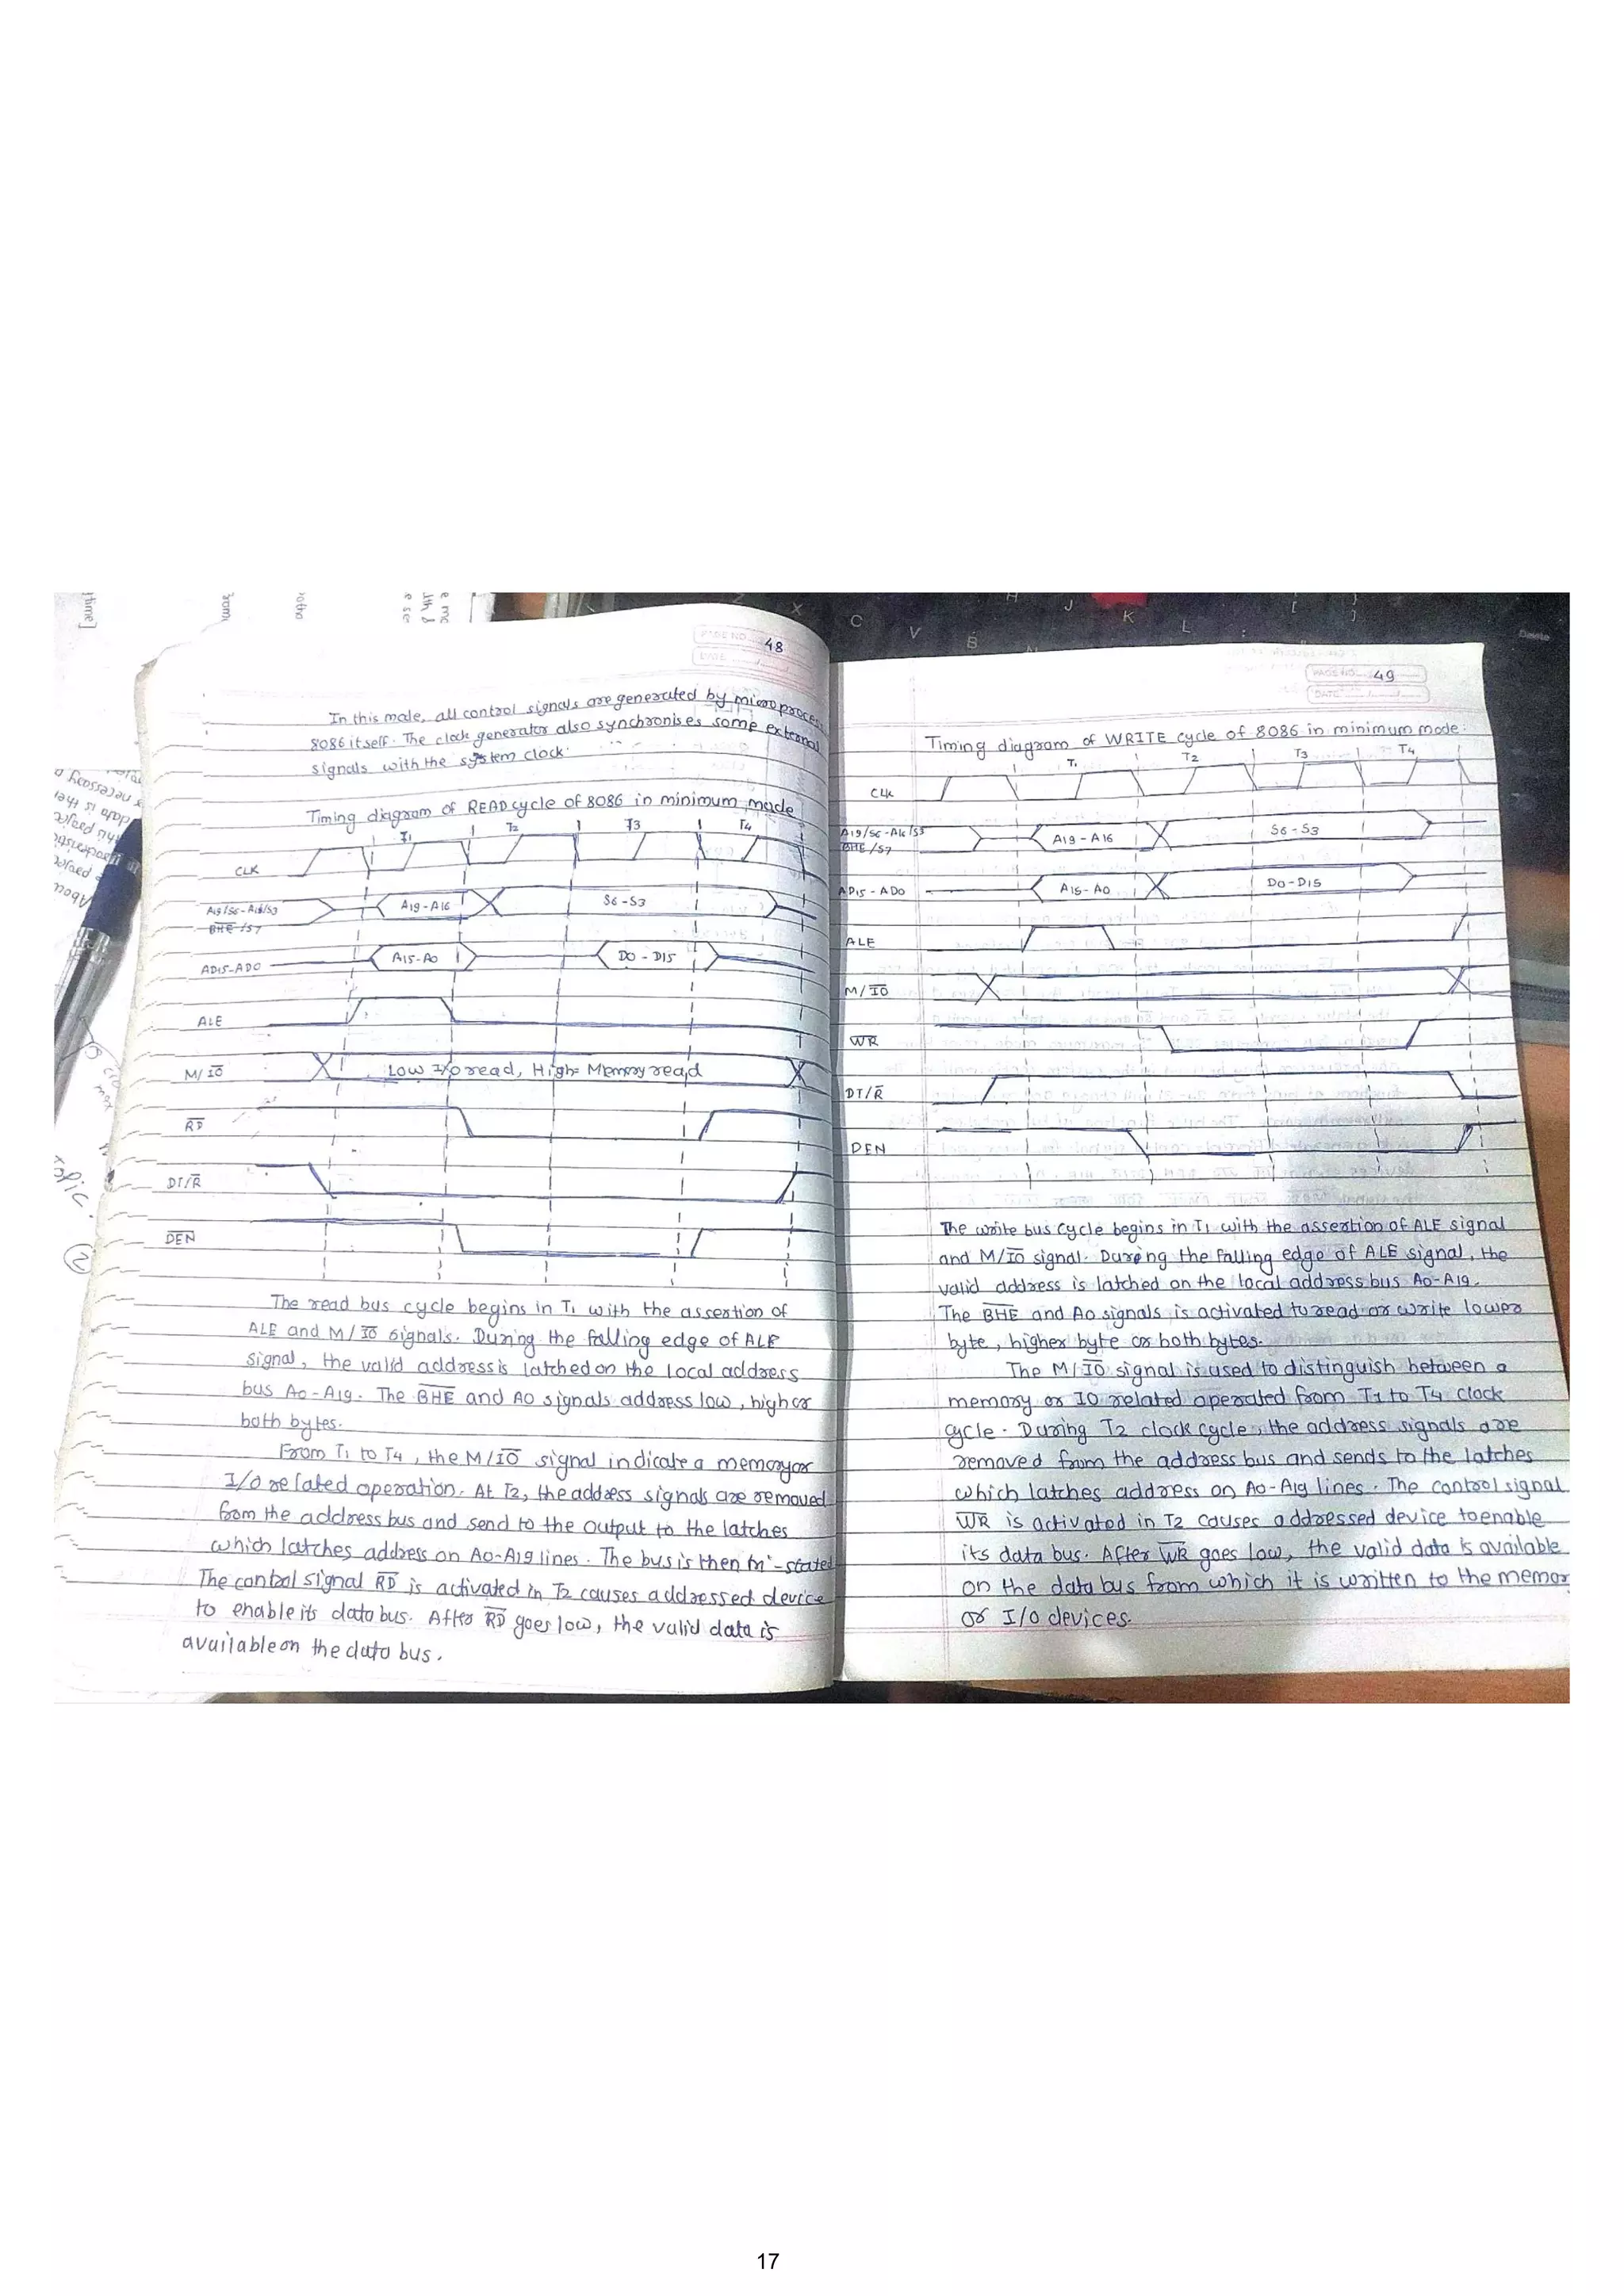 48
In this mode, all control signals are generated by microproces
8086 itself. The clock generator also synchronises some external
signals with the system clock.
Timing diagram of READ cycle of 8086 in minimum mode
T1 T2 T3 T4
CLK
A19/S6-A16/S3
B̅H̅E̅/S7
A19-A16
S6-S3
AD15-AD0
A15-A0
D0-D15
ALE
M/I̅O̅
Low I/O read, High= Memory read
R̅D̅
DT/R̅
D̅E̅N̅
The read bus cycle begins in T1 with the assertion of
ALE and M/I̅O̅ signals. During the falling edge of ALE
signal, the valid address is latched on the local address
bus A0-A19. The B̅H̅E̅ and A0 signals address low, high or
both bytes.
From T1 to T4, the M/I̅O̅ signal indicate a memory or
I/O related operation. At T2, the address signals are removed
from the address bus and send to the output to the latches
which latches address on A0-A19 lines. The bus is then tri-stated
The control signal R̅D̅ is activated in T2 causes addressed device
to enable its data bus. After R̅D̅ goes low, the valid data is
available on the data bus.
PAGE NO. 49
DATE
Timing diagram of WRITE cycle of 8086 in minimum mode.
T1 T2 T3 T4
CLK
A19/S6-A16/S3
B̅H̅E̅/S7
A19-A16
S6-S3
AD15-AD0
A15-A0
D0-D15
ALE
M/I̅O̅
W̅R̅
DT/R̅
D̅E̅N̅
The write bus cycle begins in T1 with the assertion of ALE signal
and M/I̅O̅ signal. During the falling edge of ALE signal, the
valid address is latched on the local address bus A0-A19.
The B̅H̅E̅ and A0 signals is activated to read or write lower
byte, higher byte or both bytes.
The M/I̅O̅ signal is used to distinguish between a
memory or IO related operated from T1 to T4 clock
cycle. During T2 clock cycle, the address signals are
removed from the address bus and sends to the latches
which latches address on A0-A19 lines. The control signal
W̅R̅ is activated in T2 causes addressed device to enable
its data bus. After W̅R̅ goes low, the valid data is available
on the data bus from which it is written to the memor
or I/O devices.
17